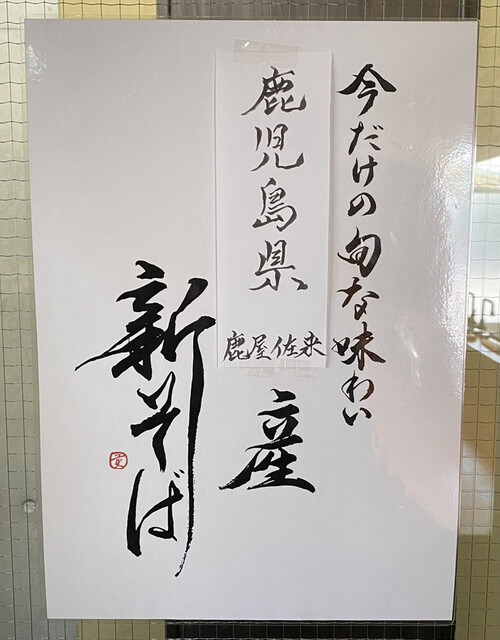 今だけの旬な味わい
鹿児島県
鹿屋在来
産
新そば